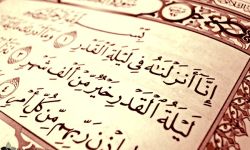 إِنَّا أَنزَلْنَٰهُ فِى لَيْلَةِ ٱلْقَدْرِ ١
لَيْلَةُ ٱلْقَدْرِ خَيْرٌ مِّنْ أَلْفِ شَهْرٍ
رَبِّهِم مِّن كُلِّ أَمْرٍ ٤